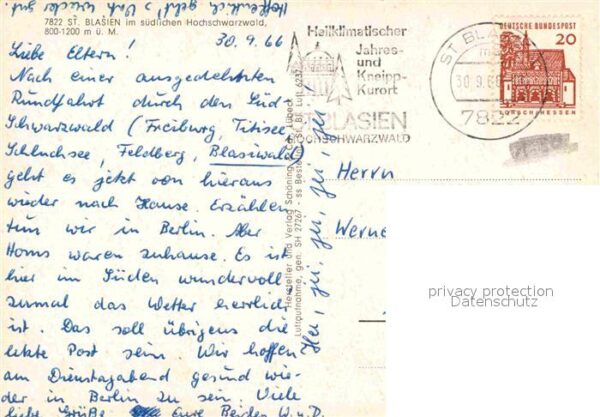 7822 ST. BLASIEN im südlichen Hochschwarzwald,
800-1200 m ü. M.
30.9.66
Liebe Eltern!
Nach einer ausgedehnten
Rundfahrt durch den Süd-
Schwarzwald (Freiburg, Titisee
Schluchsee, Feldberg, Blasiwald)
geht es jetzt von hieraus
wieder nach Hause. Erzählen
tun wir in Berlin. Aber
waren zuhause. Es ist
hier im Süden wundervoll
zumal das Wetter herrlich
ist. Das soll übrigens die
letzte Post sein. Wir hoffen
am Dienstagabend gesund wie-
der in Berlin zu sein. Viele
liebe Grüße Eure Beiden W. u. D.
Hersteller und Verlag Schöning & Co., Lübeck
Luftaufnahme, gen. SH 27267 - ss Bestell
Heilklimatischer
Jahres-
und
Kneipp-
Kurort
BLASIEN
HOCHSCHWARZWALD
ST BLASIEN
30.9.66
7822
DEUTSCHE BUNDESPOST
20
LORSCH/HESSEN
Herrn
Werne
privacy protection
Datenschutz